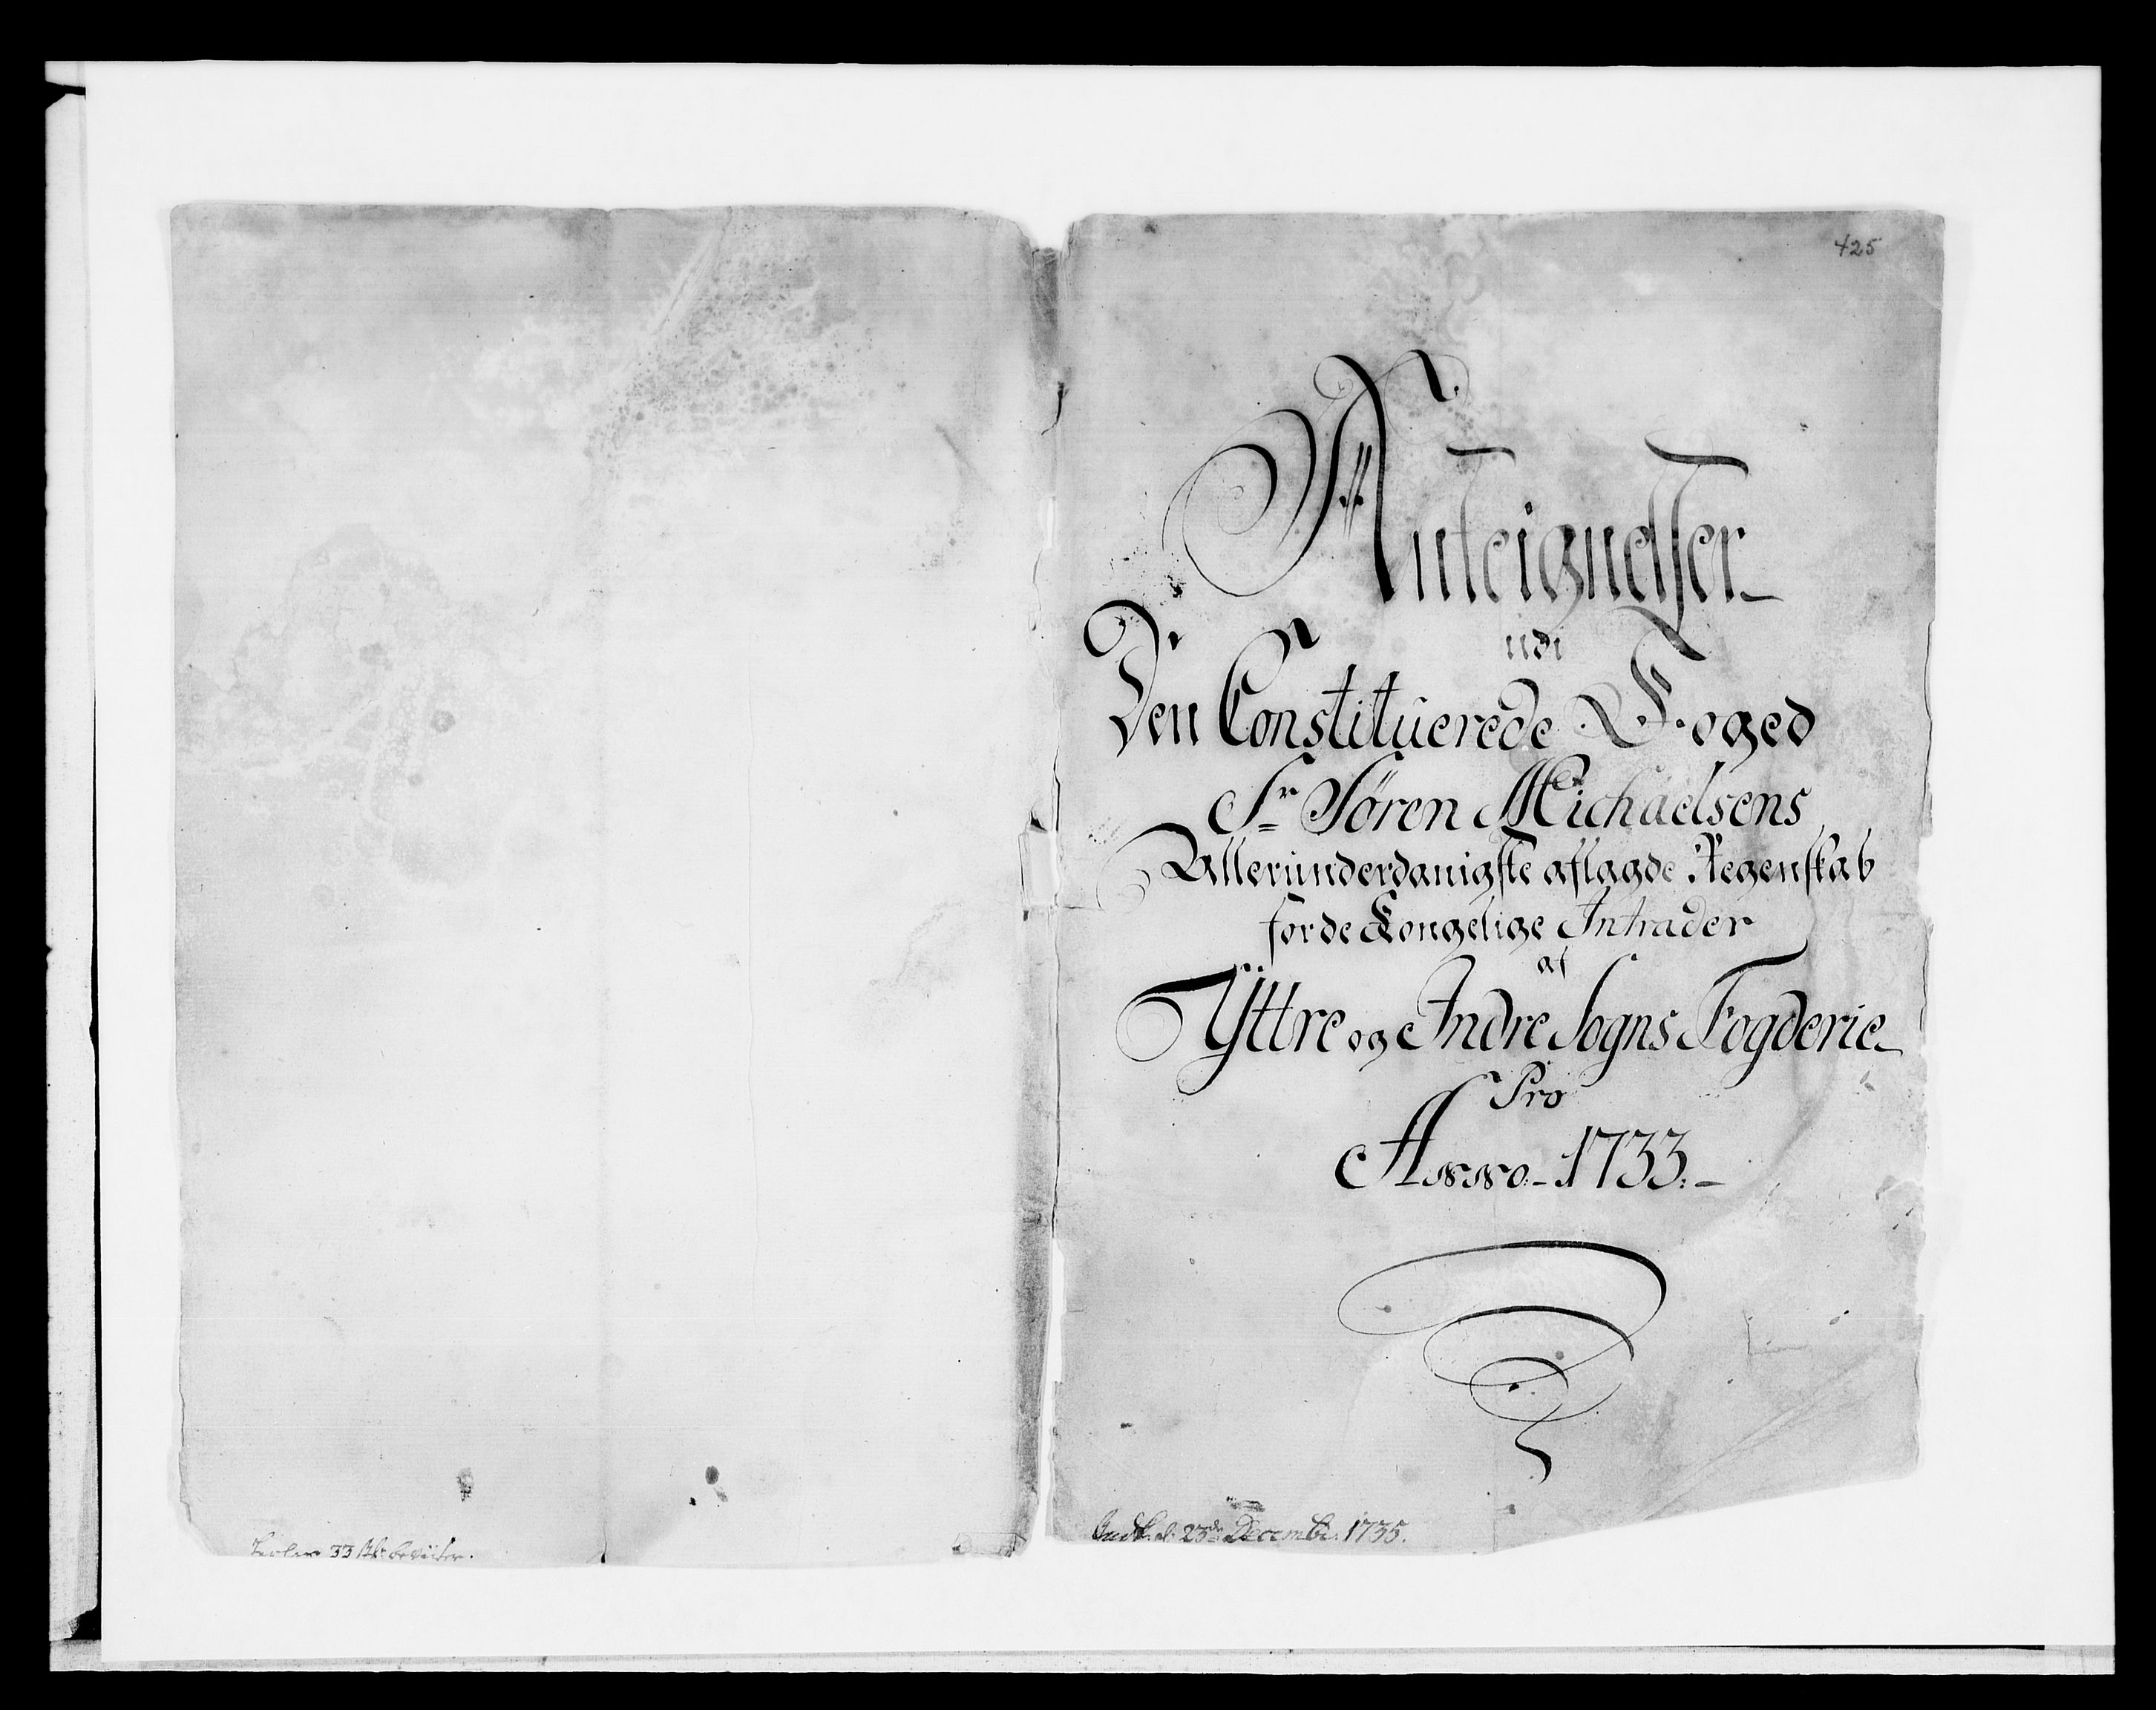 33 beviiser.
425
Anteignelser
udi
Den Constituerede Foged
Sr Søren Michaelsens
Allerunderdanigste aflagde Regenskab
for de Kongelige Intrader
af
Yttre og Indre Sogns Fogderie
Pro
Anno 1733.
d: 23de Decembr: 1735.